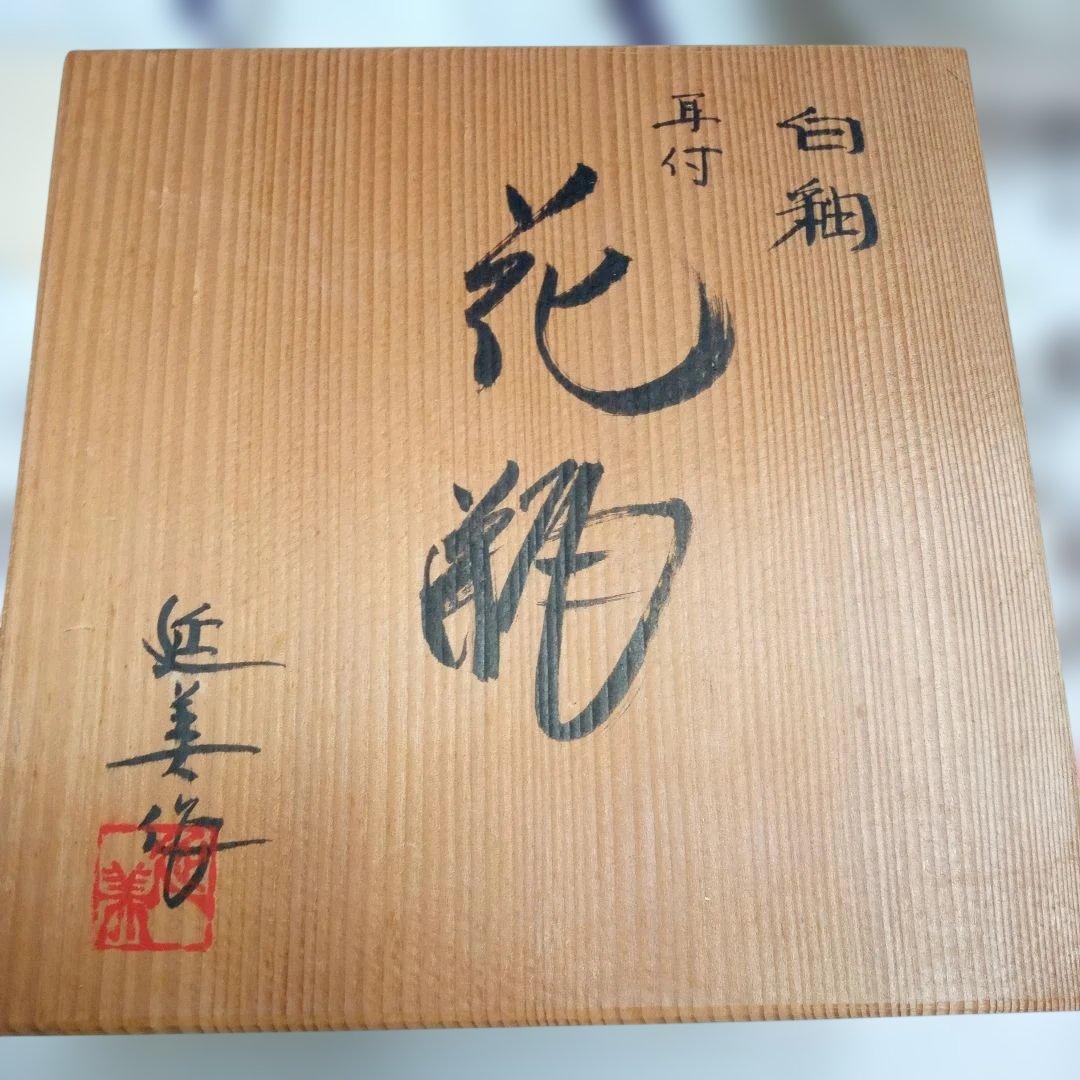 白釉
耳付
花瓶
延美作
延美